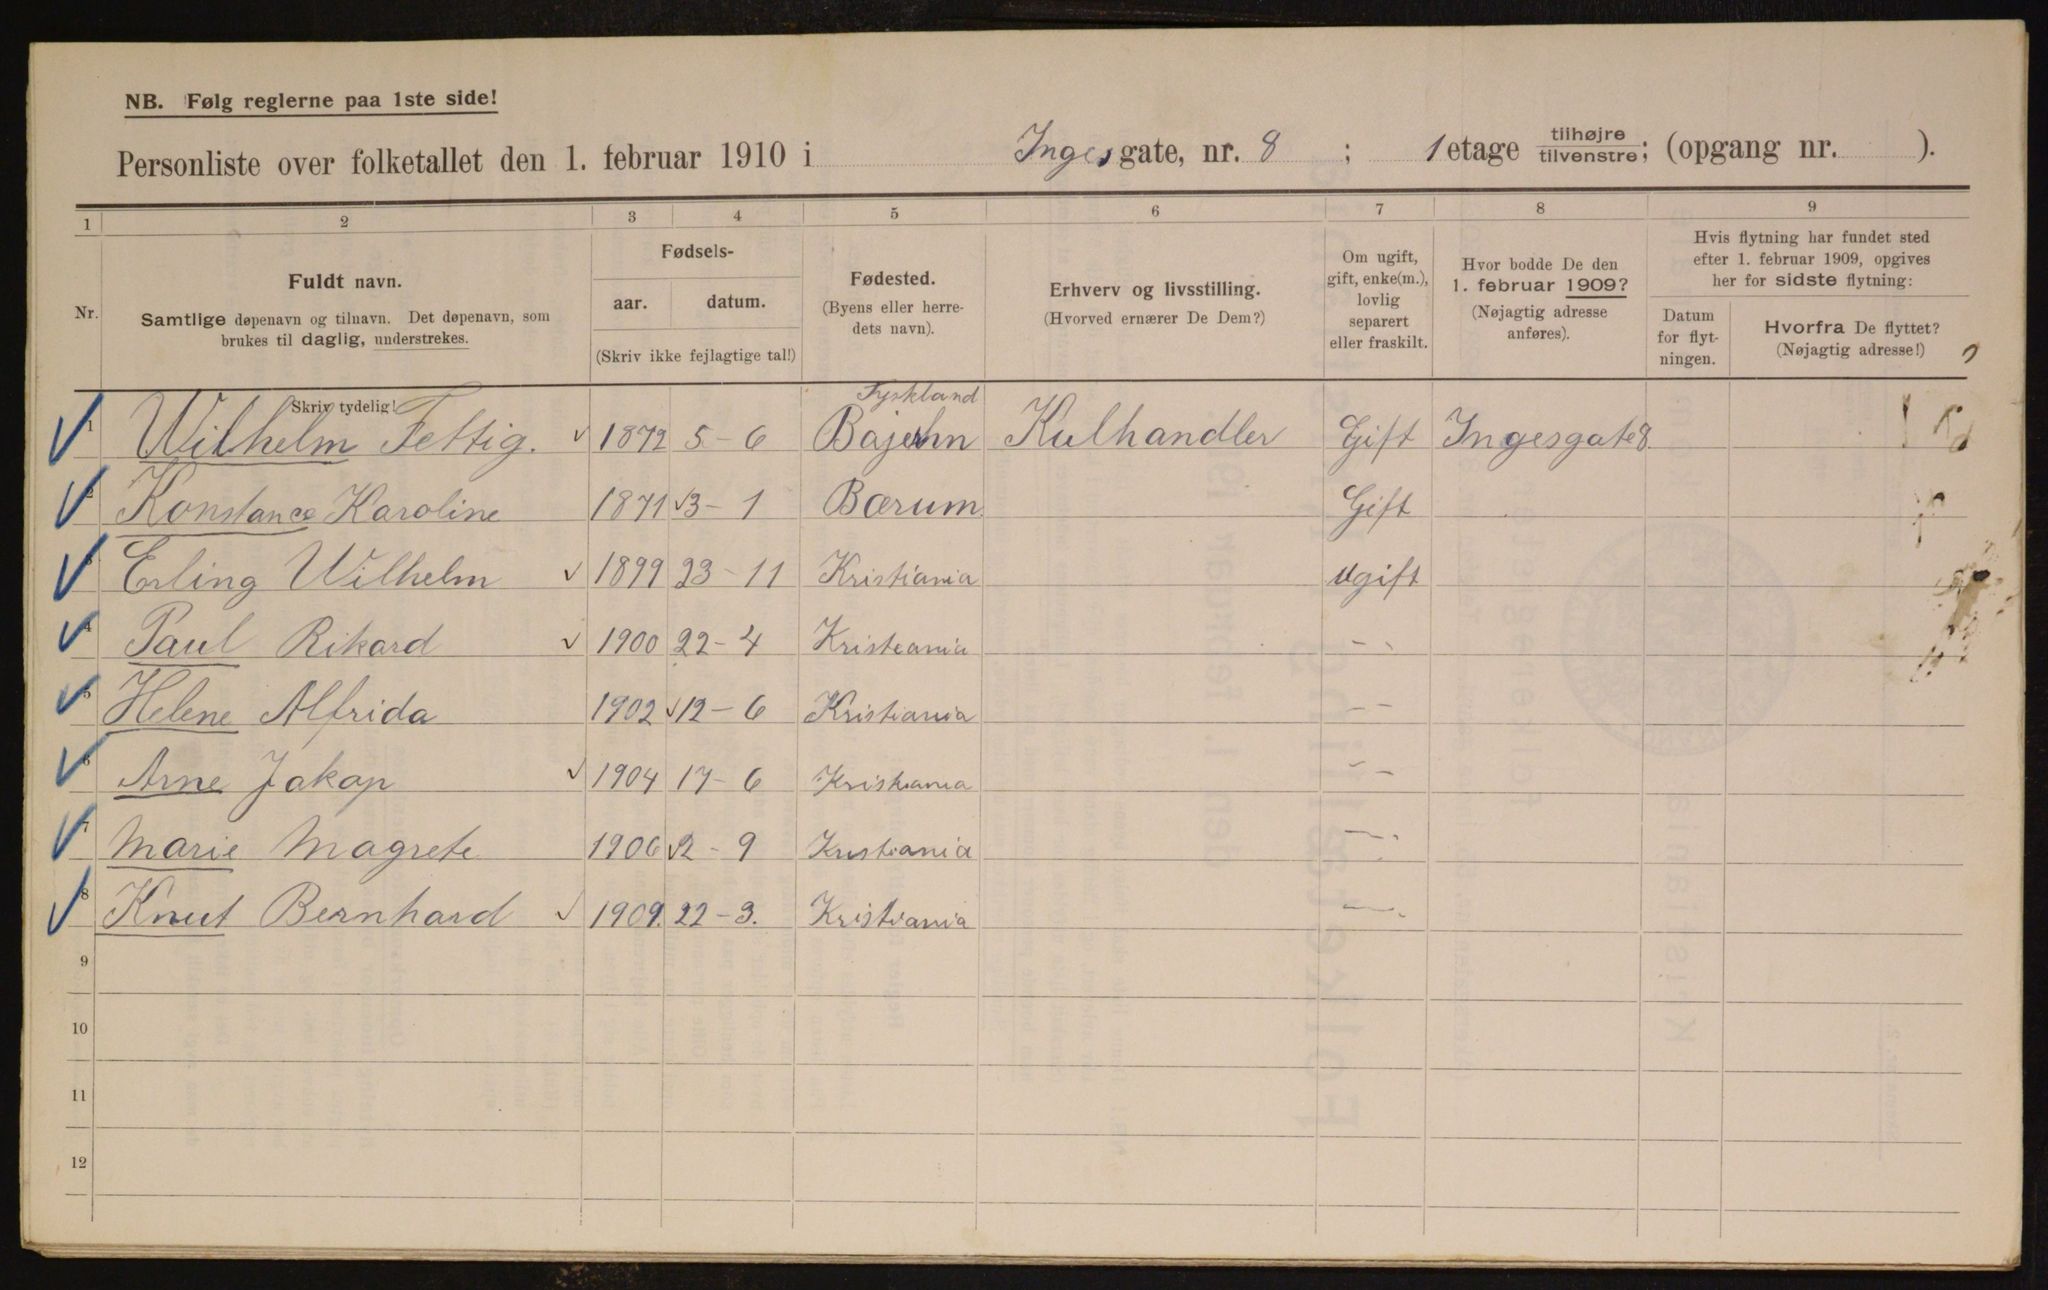 NB. Følg reglerne paa 1ste side!
Personliste over folketallet den 1. februar 1910 i Inges gate, nr. 8 ; 1 etage tilhøjre/tilvenstre; (opgang nr. ).
1 2 3 4 5 6 7 8 9
Nr.
Fuldt navn.
Samtlige døpenavn og tilnavn. Det døpenavn, som
brukes til daglig, understrekes.
Skriv tydelig!
Fødsels-
aar. datum.
(Skriv ikke fejlagtige tal!)
Fødested.
(Byens eller herre-
dets navn).
Erhverv og livsstilling.
(Hvorved ernærer De Dem?)
Om ugift,
gift, enke(m.),
lovlig
separert
eller fraskilt.
Hvor bodde De den
1. februar 1909?
(Nøjagtig adresse
anføres).
Hvis flytning har fundet sted
efter 1. februar 1909, opgives
her for sidste flytning:
Datum
for flyt-
ningen.
Hvorfra De flyttet?
(Nøjagtig adresse!)
Tyskland
1 Wilhelm Fettig. 1872 5-6 Bajern Kulhandler Gift Ingesgate 8
2 Konstance Karoline 1871 3-1 Bærum Gift
3 Erling Wilhelm 1899 23-11 Kristiania ugift
4 Paul Rikard 1900 22-4 Kristeania - -
5 Helene Alfrida 1902 12-6 Kristiania - -
6 Arne Jakop 1904 17-6 Kristiania - -
7 Marie Magrete 1906 2-9 Kristiania - -
8 Knut Bernhard 1909. 22-3. Kristiania - -
9
10
11
12